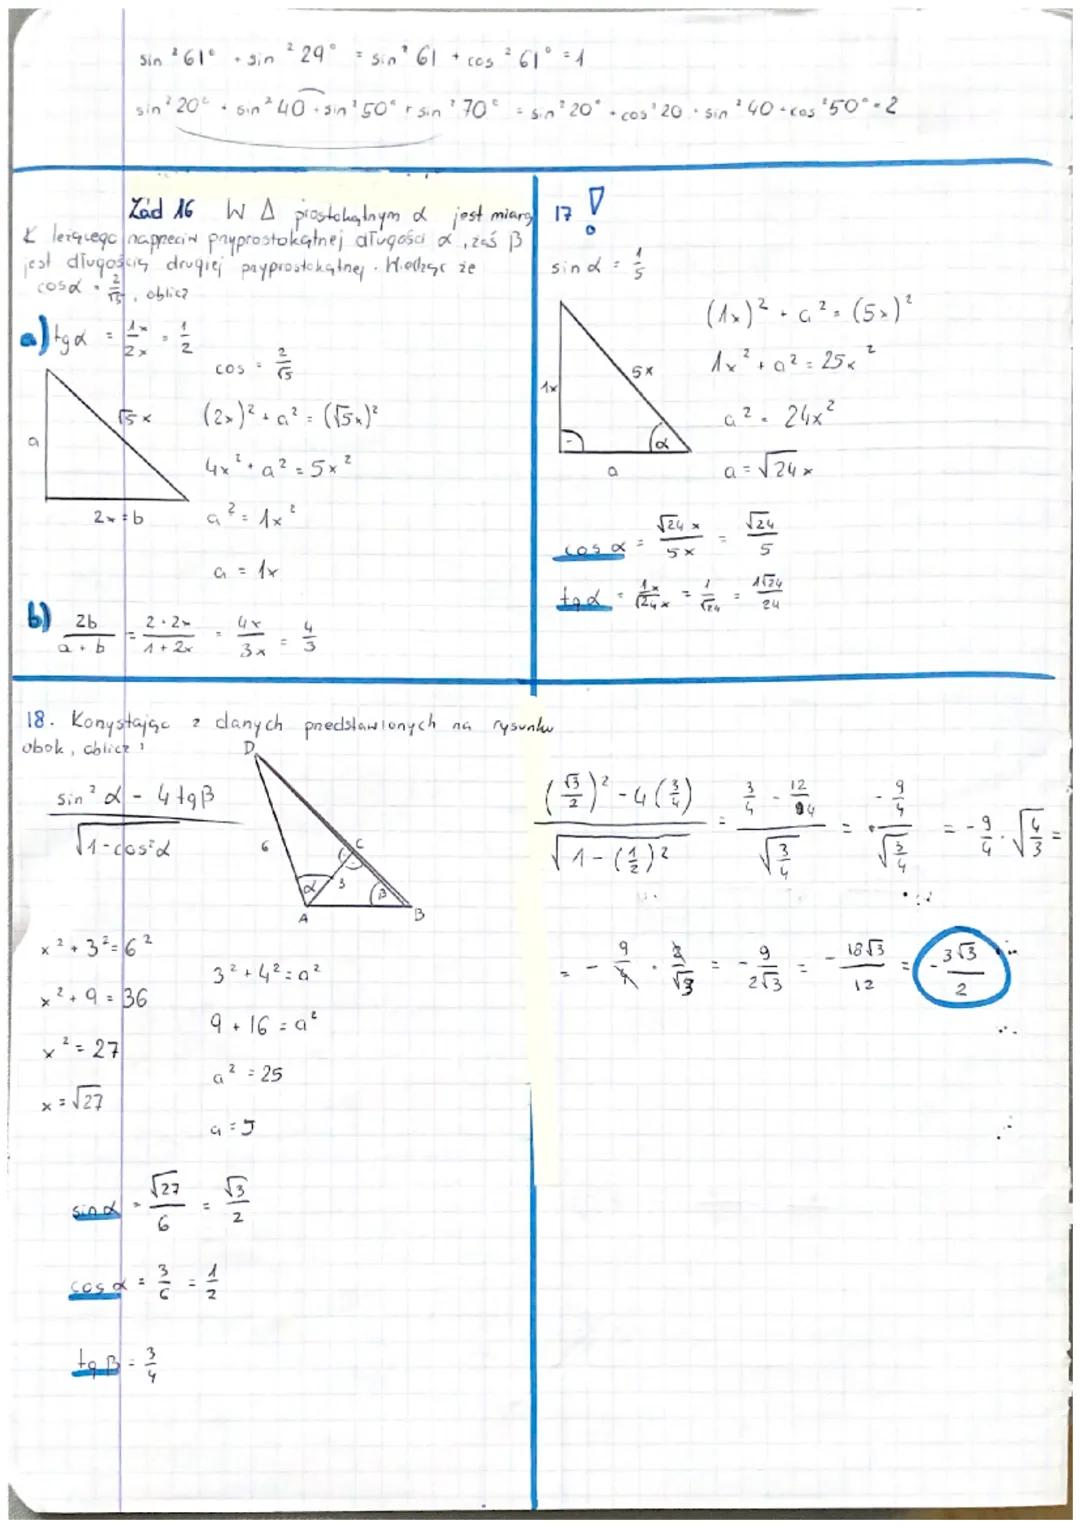 sin²61° + sin²29° = sin²61 + cos²61° = 1
sin²20° + sin²40 + sin²50° + sin²70° = sin²20° + cos²20 + sin²40 + cos²50° = 2
Zad 16 W Δ prostokątnym α jest miarą
∢ leżącego naprzeciw przyprostokątnej długości α, zaś β
jest długością drugiej przyprostokątnej. Wiedząc że
cosα = 2/√5, oblicz
a) tgα = 1x/2x = 1/2
cos = 2/√5
√5x
a
2x=b
(2x)² + a² = (√5x)²
4x² + a² = 5x²
a² = 1x²
a = 1x
b) 2b/a+b = 2·2x/1+2x = 4x/3x = 4/3
17 !
sinα = 1/5
1x
5x
α
a
(1x)² + a² = (5x)²
1x² + a² = 25x²
a² = 24x²
a = √24x
cosα = √24x/5x = √24/5
tgα = 1x/√24x = 1/√24 = 1√24/24
18. Korzystając z danych przedstawionych na rysunku
obok, oblicz:
sin²α - 4tgβ/√1-cos²α
D
6
C
α
3
β
A
B
x² + 3² = 6²
x² + 9 = 36
x² = 27
x = √27
3² + 4² = a²
9 + 16 = a²
a² = 25
a = 5
sinα = √27/6 = √3/2
cosα = 3/6 = 1/2
tgβ = 3/4
(√3/2)² - 4(3/4)/√1-(1/2)² = 3/4 - 12/4/√3/4 = -9/4/√3/4 = -9/4 · √4/3 =
= -9/4 · 2/√3 = -9/2√3 = -18√3/12 = -3√3/2